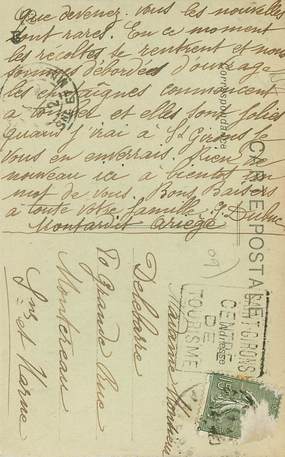 Que devenez-vous les nouvelles
sont rares. En ce moment
les récoltes se rentrent et nous
sommes débordées d'ouvrage
les chataignes commencent
à tomber et elles sont jolies
quand j'irai à St Girons je
vous en enverrais. Rien de
nouveau ici à bientôt un
mot de vous. Bons Baisers
à toute votre famille. J. Dubuc
Montardit Ariège
CARTE POSTALE
Correspondance
Adresse
ST GIRONS
CENTRE
DE
TOURISME
Madame
Delabarre
70 Grande Rue
Montereau
Sne et Marne